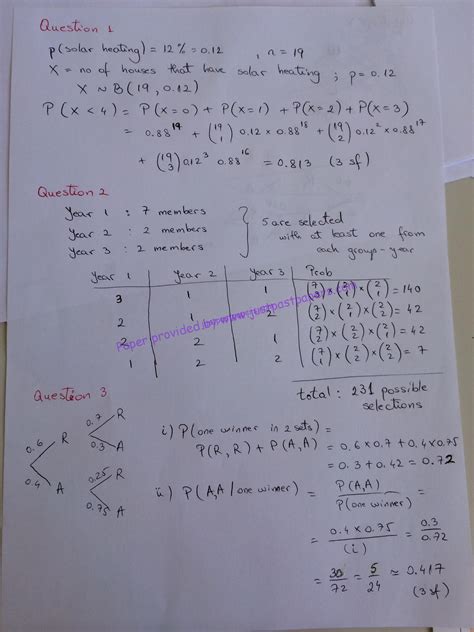 Question 1
p(solar heating) = 12% = 0.12 , n = 19
X = no of houses that have solar heating ; p = 0.12
X ~ B(19, 0.12)
P(X < 4) = P(X=0) + P(X=1) + P(X=2) + P(X=3)
= 0.88¹⁹ + (19 1) 0.12 x 0.88¹⁸ + (19 2) 0.12² x 0.88¹⁷
+ (19 3) 0.12³ 0.88¹⁶ = 0.813 (3 sf)
Question 2
Year 1 : 7 members
Year 2 : 2 members
Year 3 : 2 members
5 are selected
with at least one from
each group-year
Year 1 Year 2 Year 3 Prob
3 1 1 (7 3) x (2 1) x (2 1) = 140
2 1 2 (7 2) x (2 1) x (2 2) = 42
2 2 1 (7 2) x (2 2) x (2 1) = 42
1 2 2 (7 1) x (2 2) x (2 2) = 7
Paper provided by www.justpastpapers.com
total : 231 possible
selections
Question 3
0.6 R 0.7 R
0.3 A
0.4 A 0.25 R
0.75 A
i) P(one winner in 2 sets) =
P(R, R) + P(A, A) = 0.6 x 0.7 + 0.4 x 0.75
= 0.3 + 0.42 = 0.72
ii) P(A,A / one winner) = P(A,A) / P(one winner) =
= 0.4 x 0.75 / (i) = 0.3 / 0.72
= 30/72 = 5/24 ≃ 0.417
(3 sf)